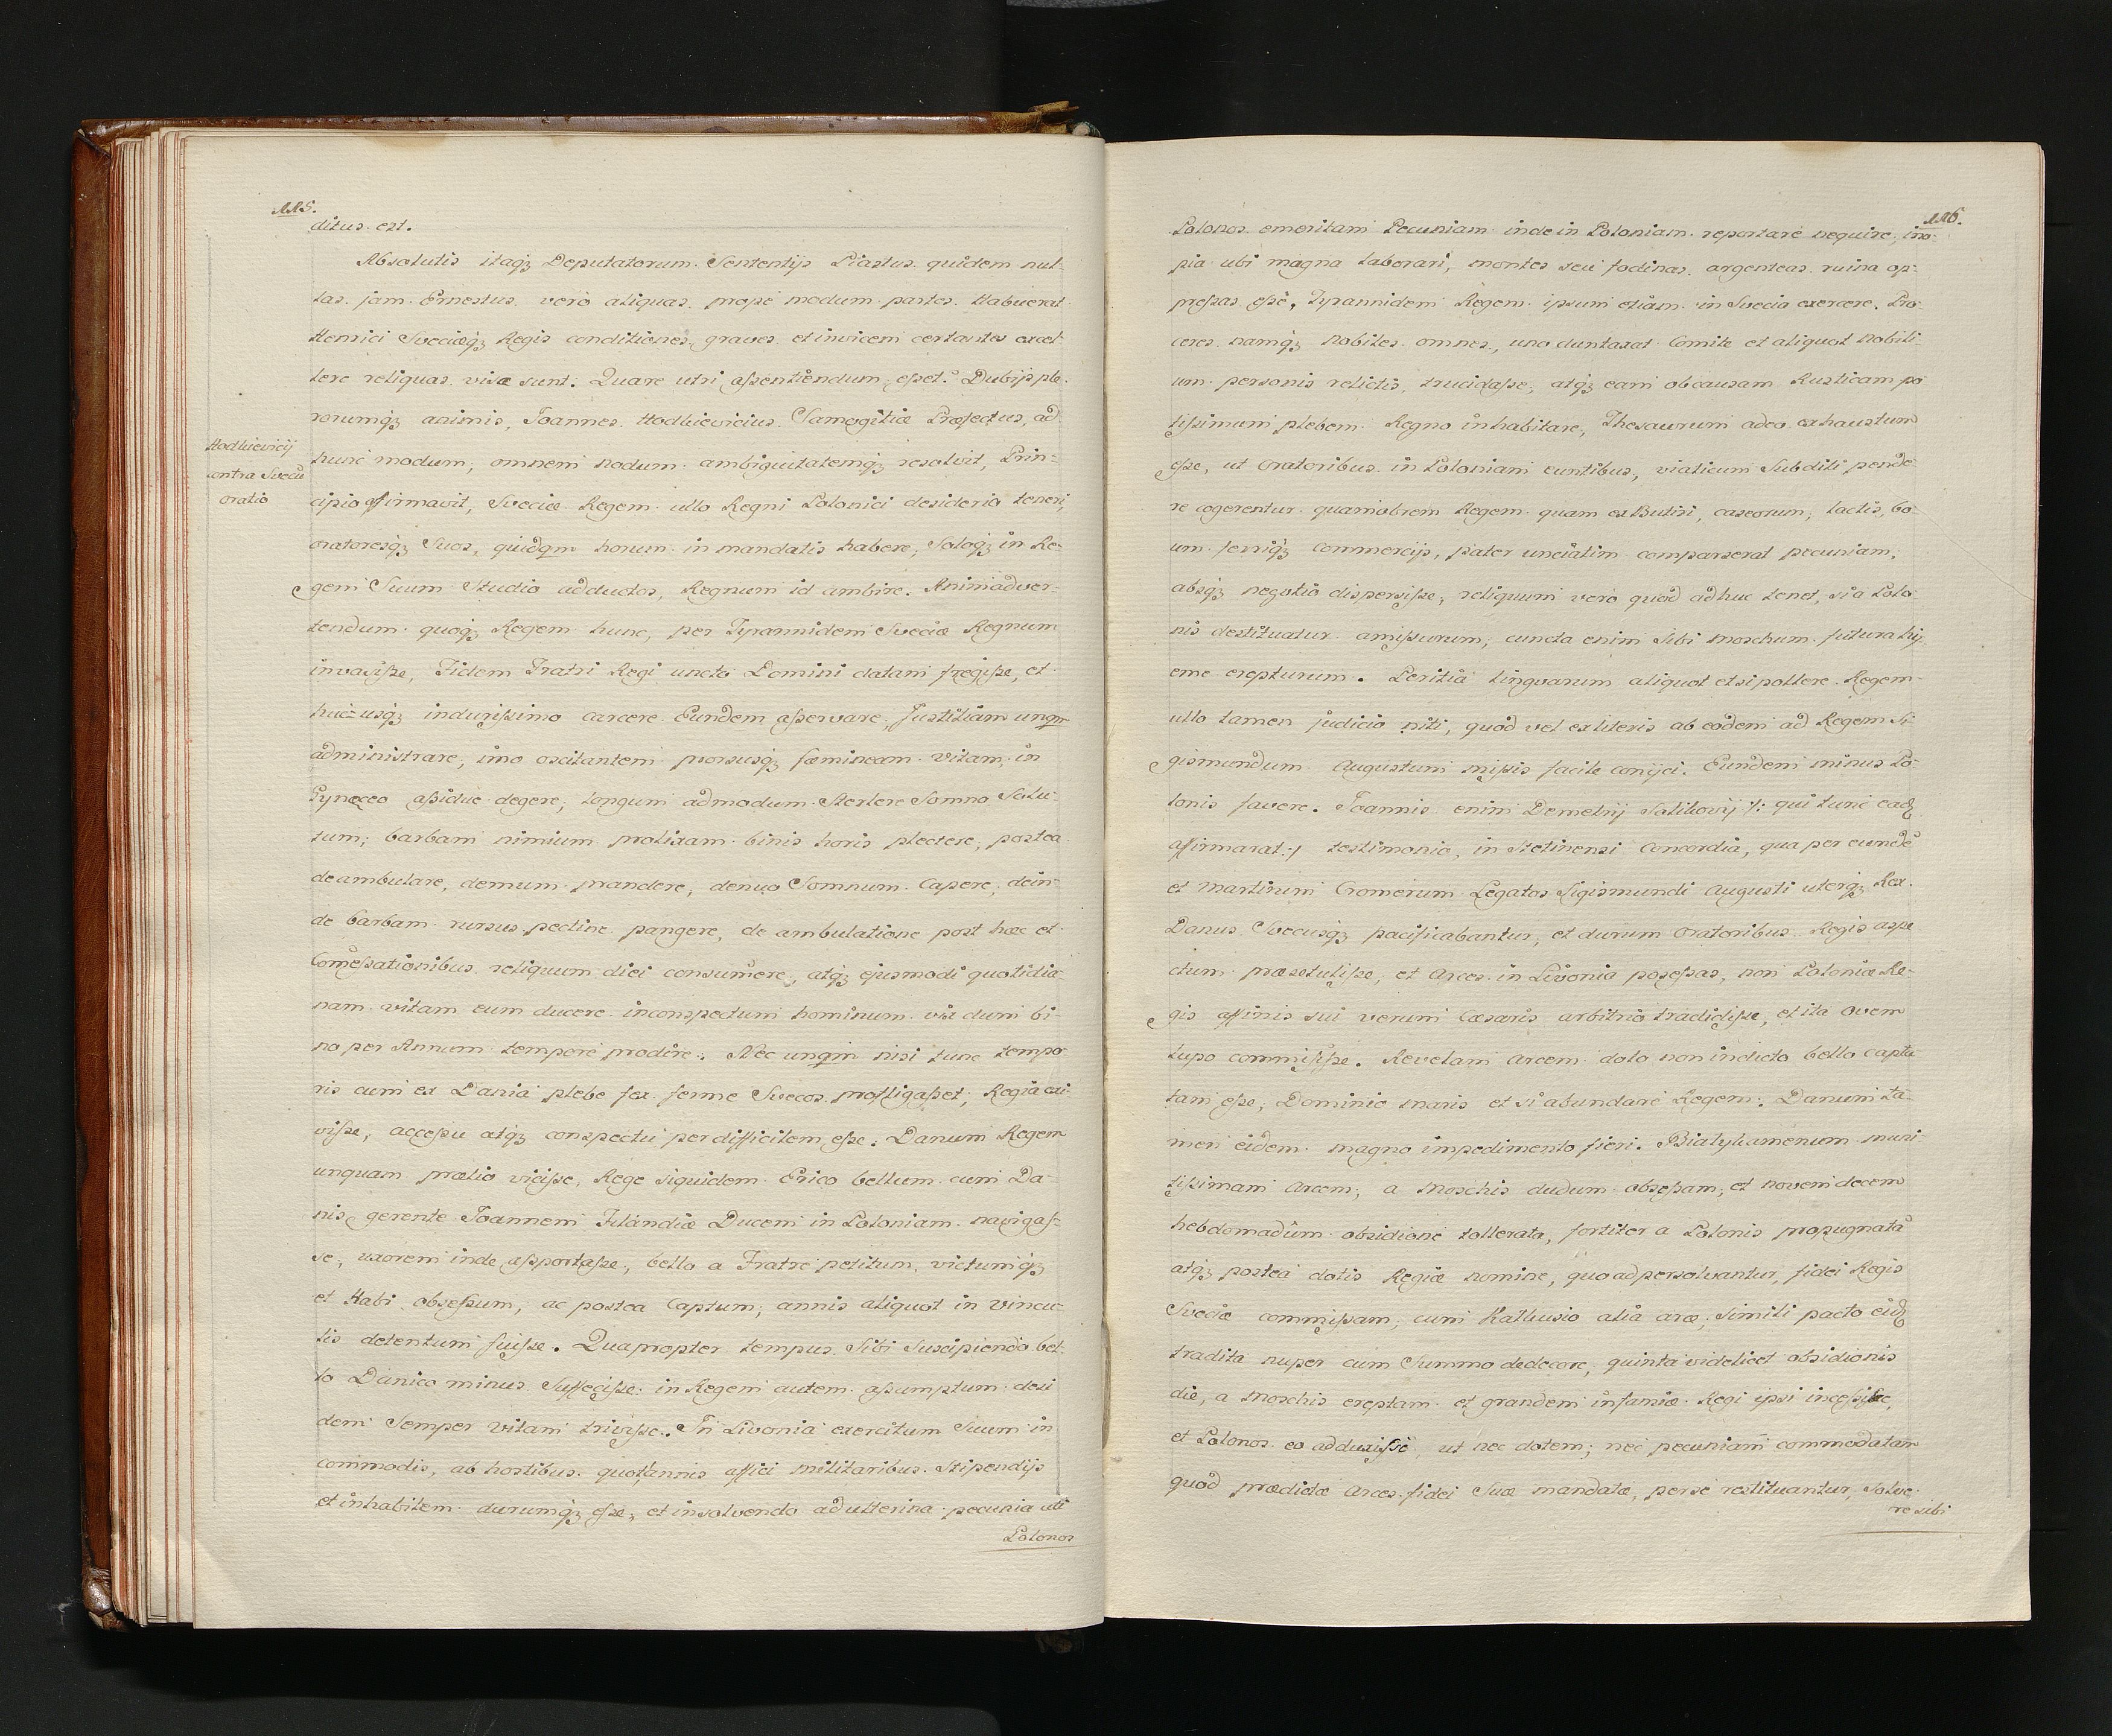 115.
ditus est.
Absolutis itaqꝫ Deputatorum Sententijs Piastus quidem nul-
las jam Ernestus vero aliquas prope modum partes Habuerat
Henrici Sveciæqꝫ Regis conditiones graves et invicem certantes excel-
lere reliquas visæ sunt. Quare utri aſsentiendum eſset? Dubijs ple-
rorumqꝫ animis, Joannes Hodkievicius Samogitiæ Præfectus, ad
Hodkievicij
contra Svecū
oratio
hunc modum, omnem nodum ambiguitatemqꝫ resolvit, Prin-
cipio affirmavit, Sveciæ Regem ullo Regni Polonici desiderio teneri,
oratoresqꝫ Suos, quidqm horum in mandatis habere, Soloqꝫ in Re-
gem Suum Studio adductos, Regnum id ambire. Animadver-
tendum quoqꝫ Regem hunc, per Tyrannidem Sveciæ Regnum
invasiſse, Fidem Fratri Regi uncto Domini datam fregiſse, et
huc usqꝫ in duriſsimo carcere Eundem aſservare, Justitiam unqm
administrare, imo oscitantem prorsusqꝫ fæmineam vitam, in
Gynæceo aſsidue degere, longum admodum Stertere Somno Solu-
tum; barbam nimium prolixam binis horis plectere, postea
deambulare, demum prandere, denuo Somnum Capere, dein-
de barbam rursus pectine pangere, de ambulatione post hæc et
Comeſsationibus reliquum diei consumere, atqꝫ ejusmodi quotidia-
nam vitam eum ducere in conspectum hominum vix dum bi-
no per Annum tempore prodire. Nec unqm nisi tunc tempo-
ris cum ex Dania plebe fex ferme Svecos profligaſset, Regia exi-
viſse, acceſsu atqꝫ conspectu perdifficilem eſse. Danum Regem
unquam prælio viciſse, Rege siquidem Erico bellum cum Da-
nis gerente Joannem Finlandiæ Ducem in Poloniam navigaſ-
se, uxorem inde aſsportaſse, bello a Fratre petitum, victumqꝫ
et Habi obseſsum, ac postea Captum, annis aliquot in vincu-
lis detentum fuiſse. Quapropter tempus Sibi Suscipiendo bel-
lo Danico minus Suffeciſse in Regem autem aſsumptum desi-
dem Semper vitam triviſse. In Livonia exercitum Suum in
commodis, ab hostibus quotannis affici militaribus Stipendijs
et inhabilem durumqꝫ eſse, et in solvendo adulterina pecunia uti
Polonos
116.
Polonos emeritam Pecuniam inde in Poloniam reportare nequire, ino-
pia ubi magna laborari, montes seu fodinas argenteas ruina op-
preſsas eſse, Tyrannidem Regem ipsum etiam in Svecia exercere. Pro-
ceres namqꝫ nobiles omnes, uno duntaxat Comite et aliquot nobili-
um personis relictis, trucidaſse, atqꝫ eam ob causam Rusticam po-
tiſsimum plebem Regno inhabitare, Thesaurum adeo exhaustum
eſse, ut Oratoribus in Poloniam euntibus, viaticum Subditi pende-
re cogerentur quamobrem Regem quam ex Butiri, caseorum, lactis, bo-
um ferriqꝫ commercijs, pater unciatim comparserat pecuniam,
absqꝫ negotio disperſiſse, reliquum vero quod adhuc tenet, si a Polo-
nis destituatur amiſsurum, cuncta enim Sibi Moschum futura hy-
eme erepturum. Peritia lingvarum aliquot etsi pollere Regem
ullo tamen judicio niti, quod vel ex literis ab eodem ad Regem Si-
gismundum Augustum miſsis facile conijci. Eundem minus Po-
lonis favere. Joannis enim Demetrij Solikovij /: qui tunc eadꝫ
affirmarat :/ testimonio, in Stetinensi Concordia, qua per eundē
et Martinum Cromerum Legatos Sigismundi Augusti uterqꝫ Rex
Danus Svecusqꝫ pacificabantur, et durum Oratoribus Regis aspe-
ctum præsetuliſse, et Arces in Livonia poſseſsas, non Poloniæ Re-
gis affinis sui verum Cæsaris arbitrio tradidiſse, et ita Ovem
lupo commiſiſse. Revelam Arcem dolo non indicto bello capta-
tam eſse, Dominio maris et si abundare Regem. Danum ta-
men eidem magno impedimento fieri. Bialykamenum muni-
tiſsimam Arcem, a Moschis dudum obseſsam, et novemdecem
hebdomadum obsidione tollerata, fortiter a Polonis propugnatā
atqꝫ postea dotis Regiæ nomine, quo ad persolvantur, fidei Regis
Sveciæ commiſsam, cum Kathusio alia arce, simili pacto eidꝫ
tradita nuper cum Summo dedecore, quinta videlicet obsidionis
die, a Moschis ereptam et grandem infamiæ Regi ipsi inceſsiſse,
et Polonos eo adduxiſse, ut nec dotem, nec pecuniam commodatam
quod prædictæ Arces fidei Suæ mandatæ, per se restituantur, Solve-
re sibi